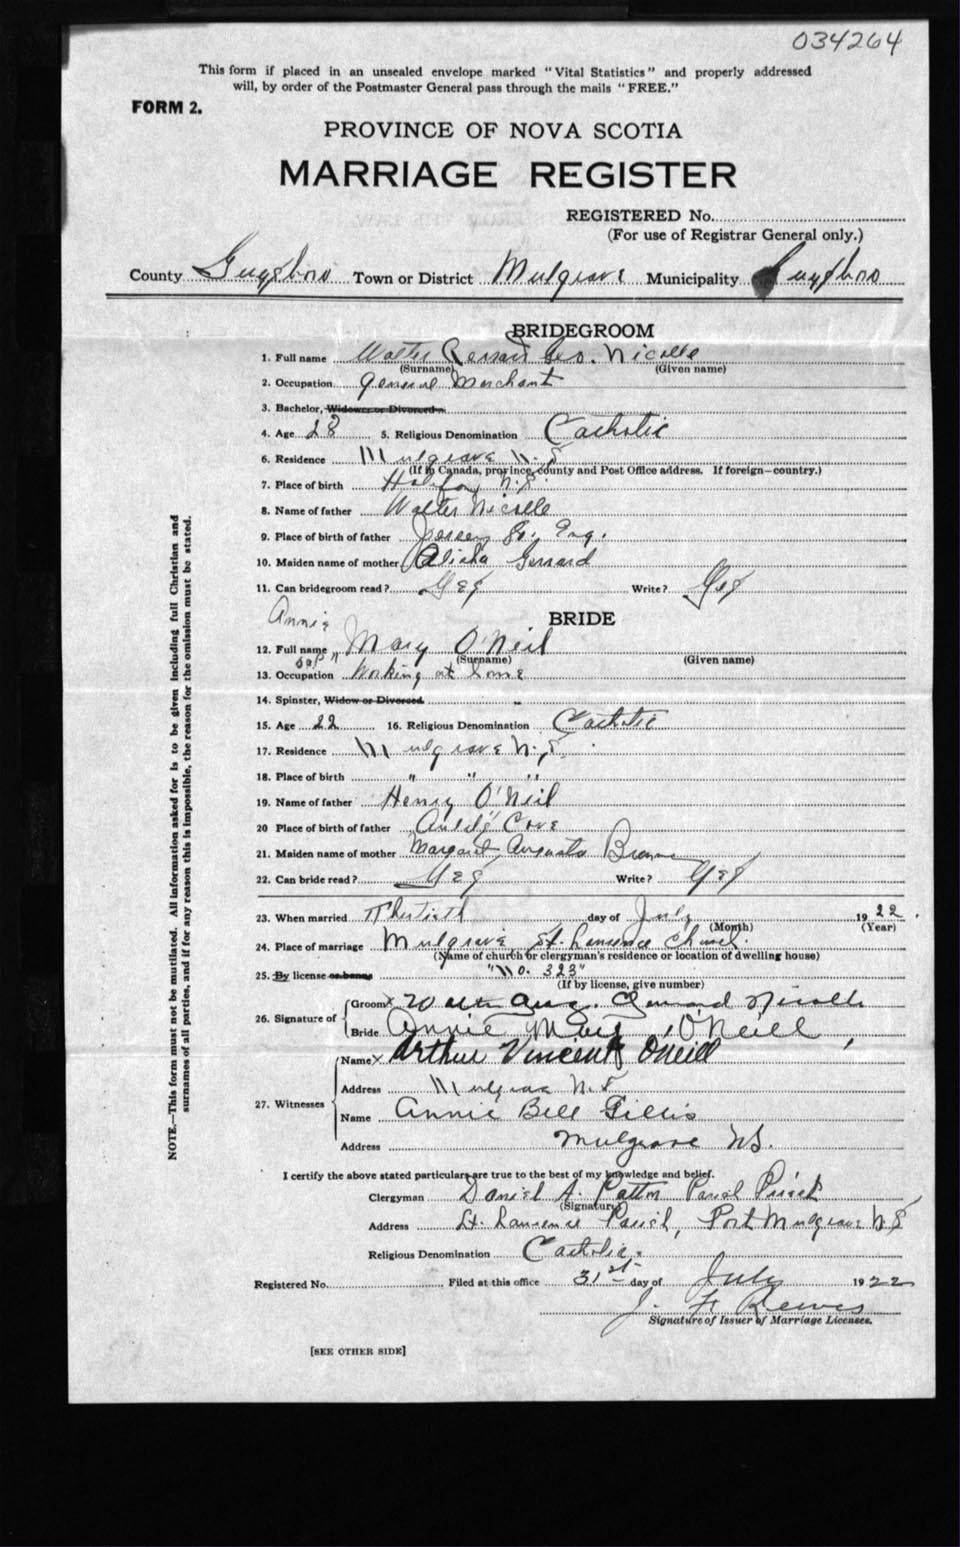 034264
This form if placed in an unsealed envelope marked "Vital Statistics" and properly addressed
will, by order of the Postmaster General pass through the mails "FREE."
FORM 2.
PROVINCE OF NOVA SCOTIA
MARRIAGE REGISTER
REGISTERED No.
(For use of Registrar General only.)
County Guysboro Town or District Mulgrave Municipality Guysboro
BRIDEGROOM
1. Full name Walter Geo. Nicolle
(Surname) (Given name)
2. Occupation General Merchant
3. Bachelor, Widower or Divorced
4. Age 28 5. Religious Denomination Catholic
6. Residence Mulgrave N.S
(If in Canada, province, county and Post Office address. If foreign—country.)
7. Place of birth Halifax N.S.
8. Name of father Walter Nicolle
9. Place of birth of father Jersey Eng.
10. Maiden name of mother Gerrard
11. Can bridegroom read? Yes Write? Yes
BRIDE
Annie
12. Full name Mary O'Neil
(Surname) (Given name)
13. Occupation Working at home
14. Spinster, Widow or Divorced
15. Age 22 16. Religious Denomination Catholic
17. Residence Mulgrave N.S.
18. Place of birth " " "
19. Name of father Henry O'Neil
20 Place of birth of father Cove
21. Maiden name of mother Margaret Augusta
22. Can bride read? Yes Write? Yes
23. When married Thirtieth day of July 1922.
(Month) (Year)
24. Place of marriage Mulgrave St. Lawrence Church.
(Name of church or clergyman's residence or location of dwelling house)
25. By license or banns "No. 323"
(If by license, give number)
26. Signature of Groom x Walter Gerrard Nicolle
Bride Annie Mary O'Neill,
27. Witnesses Name x Arthur Vincent O'Neill
Address Mulgrave N.S
Name Annie Bell Gillis
Address Mulgrave NS.
I certify the above stated particulars are true to the best of my knowledge and belief.
Clergyman Daniel A. Patton Parish Priest
(Signature)
Address St. Lawrence Parish, Port Mulgrave N.S
Religious Denomination Catholic.
Registered No. Filed at this office 31st day of July 1922
J. F. Reeves
Signature of Issuer of Marriage Licenses.
[SEE OTHER SIDE]
NOTE.—This form must not be mutilated. All information asked for is to be given including full Christian and
surnames of all parties, and if for any reason this is impossible, the reason for the omission must be stated.